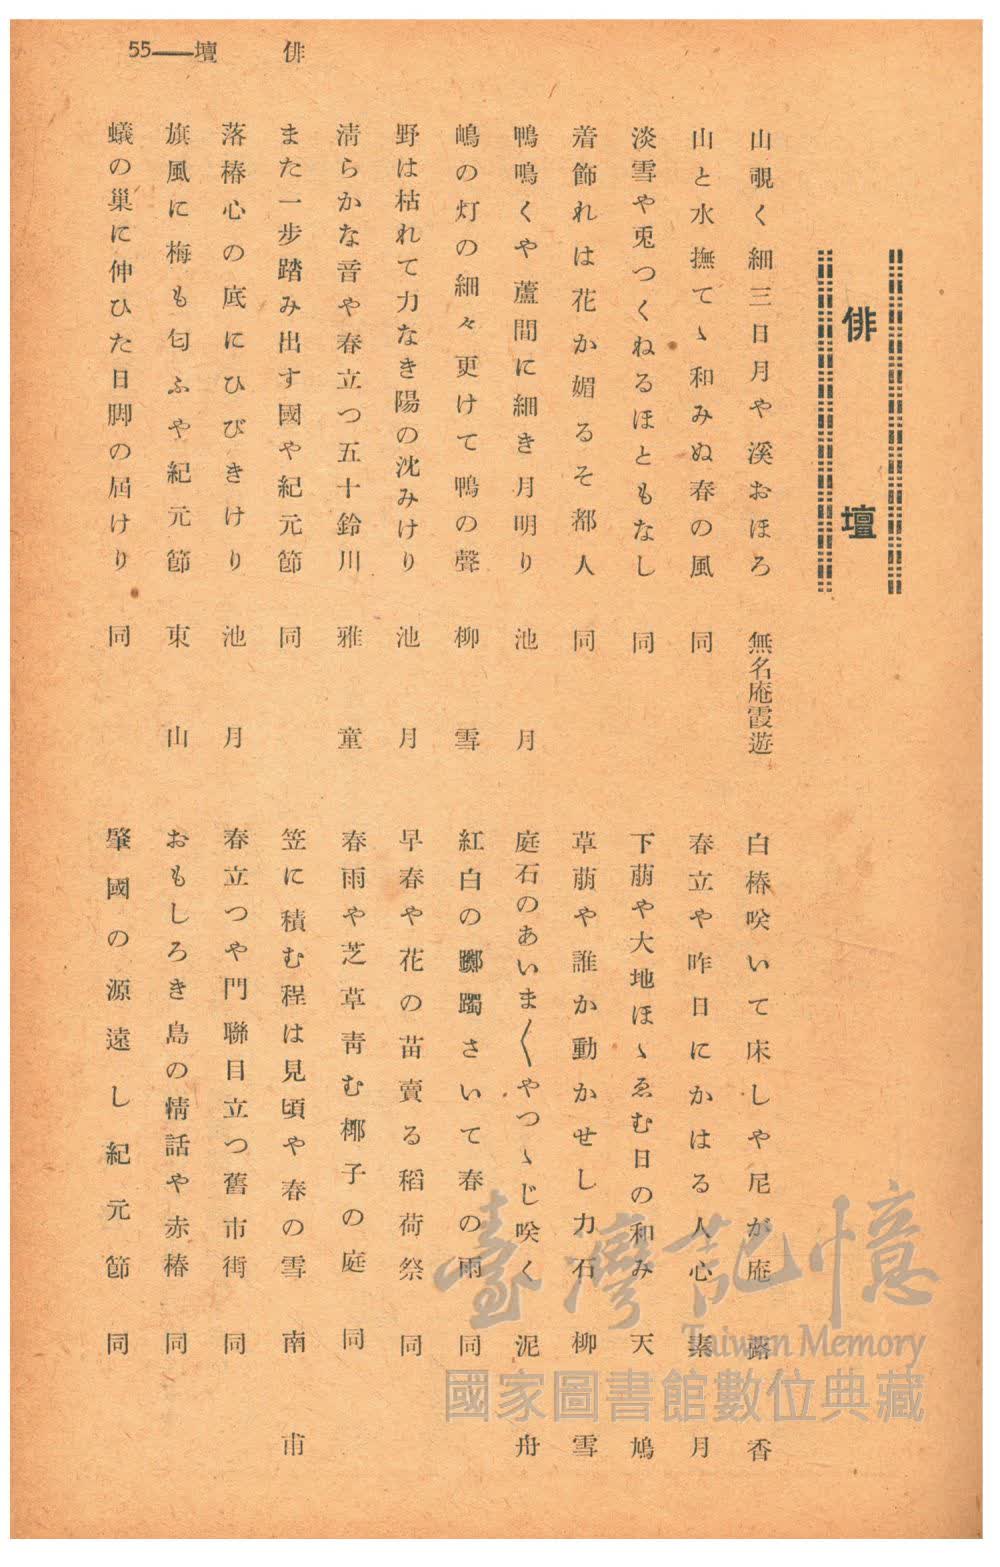 俳　壇――55
俳　壇
山覗く細三日月や溪おほろ　無名庵霞遊
山と水撫てゝ和みぬ春の風　同
淡雪や兎つくねるほともなし　同
着飾れは花か媚るそ都人　同
鴨鳴くや蘆間に細き月明り　池月
嶋の灯の細々更けて鴨の聲　柳雪
野は枯れて力なき陽の沈みけり　池月
淸らかな音や春立つ五十鈴川　雅童
また一步踏み出す國や紀元節　同
落椿心の底にひびきけり　池月
旗風に梅も匂ふや紀元節　東山
蟻の巢に伸ひた日脚の屆けり　同
白椿咲いて床しや尼が庵　露香
春立や昨日にかはる人心　素月
下萠や大地ほゝゑむ日の和み　天鳩
草萠や誰か動かせし力石　柳雪
庭石のあいま〱やつゝじ咲く　泥舟
紅白の躑躅さいて春の雨　同
早春や花の苗賣る稻荷祭　同
春雨や芝草靑む椰子の庭　同
笠に積む程は見頃や春の雪　南甫
春立つや門聯目立つ舊市街　同
おもしろき島の情話や赤椿　同
肇國の源遠し紀元節　同
臺灣記憶
Taiwan Memory
國家圖書館數位典藏